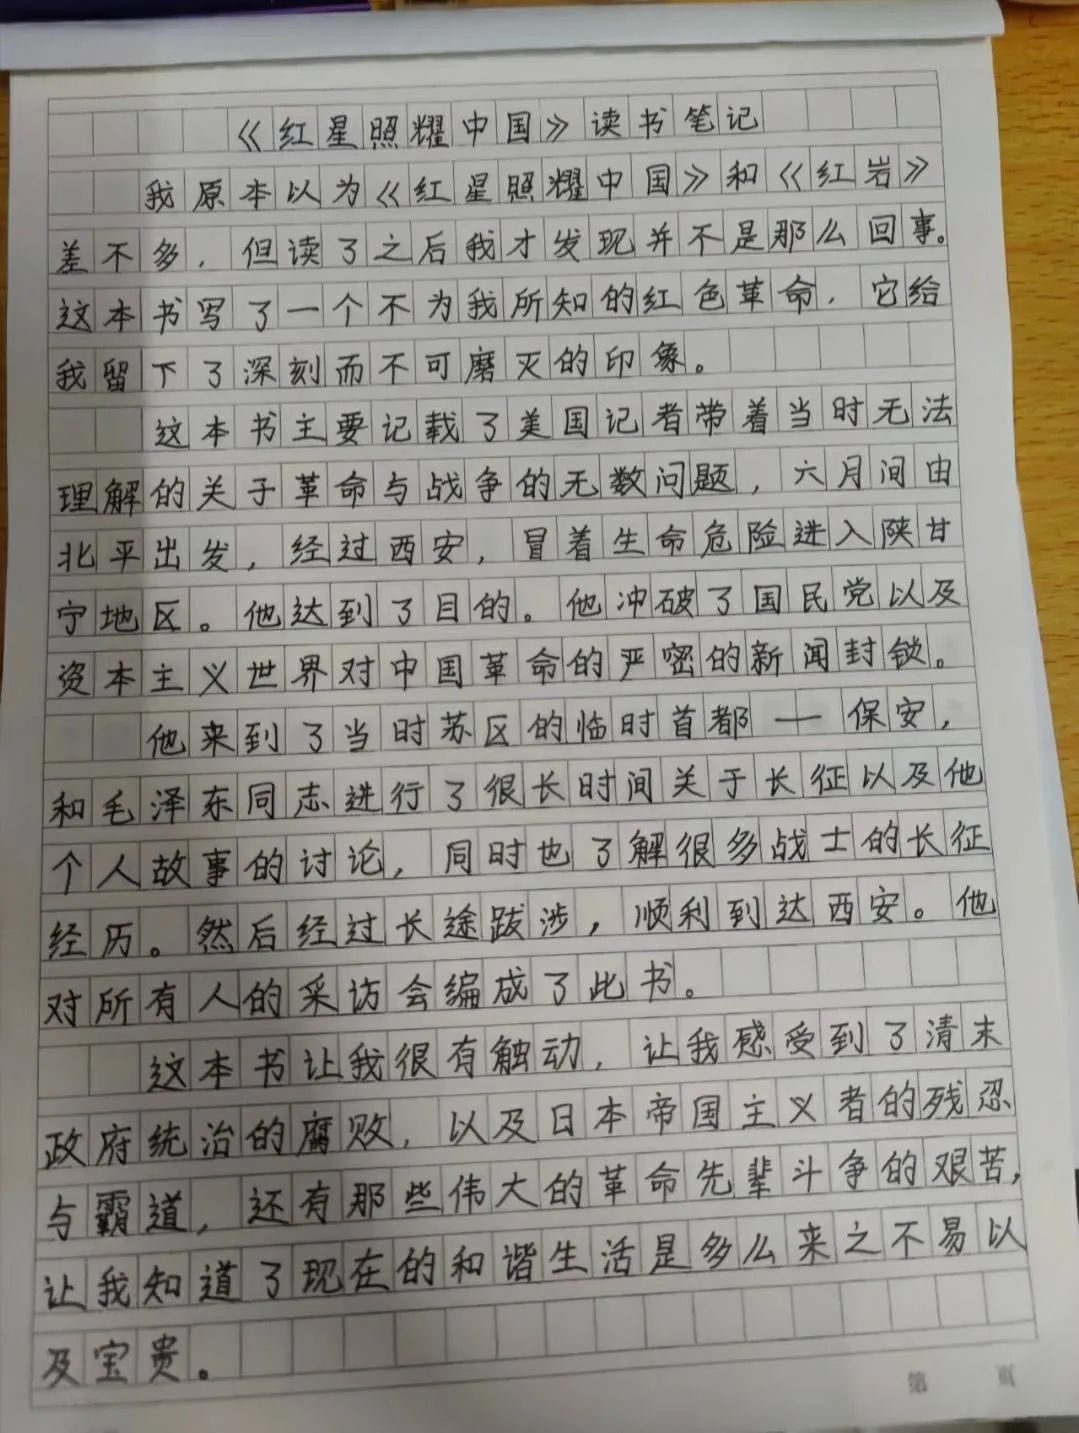 《红星照耀中国》读书笔记
我原本以为《红星照耀中国》和《红岩》
差不多，但读了之后我才发现并不是那么回事。
这本书写了一个不为我所知的红色革命，它给
我留下了深刻而不可磨灭的印象。
这本书主要记载了美国记者带着当时无法
理解的关于革命与战争的无数问题，六月间由
北平出发，经过西安，冒着生命危险进入陕甘
宁地区。他达到了目的。他冲破了国民党以及
资本主义世界对中国革命的严密的新闻封锁。
他来到了当时苏区的临时首都——保安，
和毛泽东同志进行了很长时间关于长征以及他
个人故事的讨论，同时也了解很多战士的长征
经历。然后经过长途跋涉，顺利到达西安。他
对所有人的采访会编成了此书。
这本书让我很有触动，让我感受到了清末
政府统治的腐败，以及日本帝国主义者的残忍
与霸道，还有那些伟大的革命先辈斗争的艰苦，
让我知道了现在的和谐生活是多么来之不易以
及宝贵。
第 页